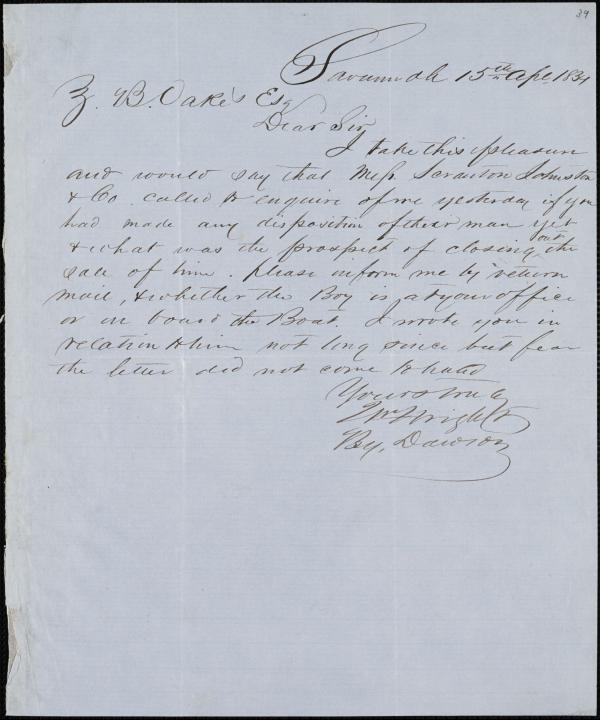 39
Savannah 15th Apl. 1854
Z. B. Oakes Esq
Dear Sir
I take this pleasure
and would say that Mess. Scranton Johnston
& Co. called to enquire of me yesterday if you
had made any disposition of their man yet
& what was the prospect of closing out the
sale of him. please inform me by return
mail, & whether the Boy is at your office
or on board the Boat. I wrote you in
relation to him not long since but fear
the letter did not come to hand
Yours truly
Wm Wright
By, Dawson